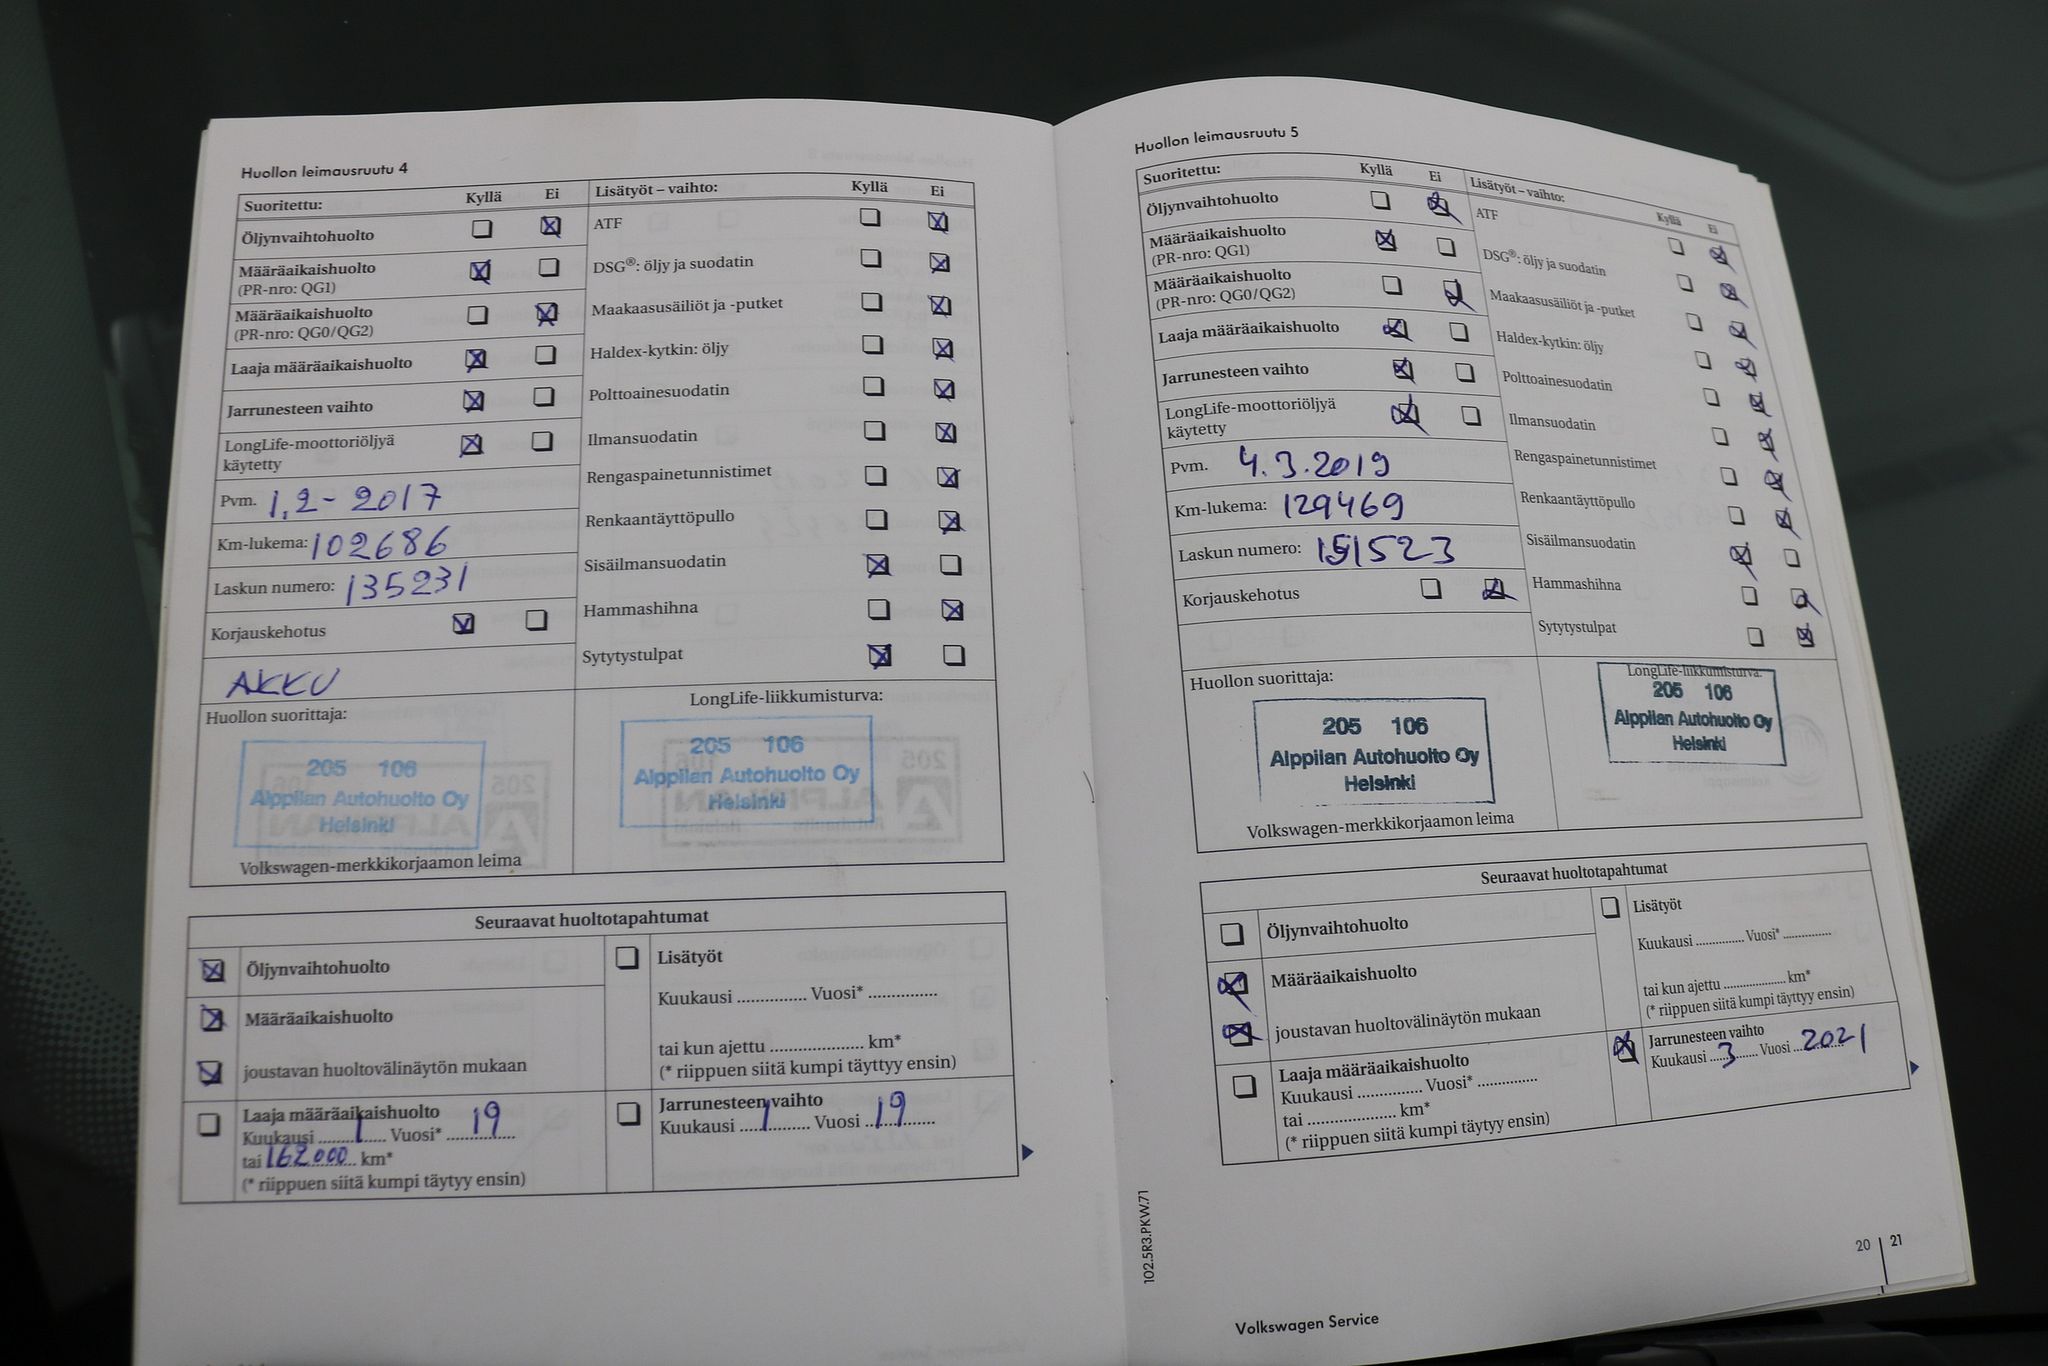 Huollon leimausruutu 4
Suoritettu: Kyllä Ei
Öljynvaihtohuolto
Määräaikaishuolto
(PR-nro: QG1)
Määräaikaishuolto
(PR-nro: QG0/QG2)
Laaja määräaikaishuolto
Jarrunesteen vaihto
LongLife-moottoriöljyä
käytetty
Pvm. 1.2-2017
Km-lukema: 102686
Laskun numero: 135231
Korjauskehotus
AKKU
Lisätyöt – vaihto: Kyllä Ei
ATF
DSG®: öljy ja suodatin
Maakaasusäiliöt ja -putket
Haldex-kytkin: öljy
Polttoainesuodatin
Ilmansuodatin
Rengaspainetunnistimet
Renkaantäyttöpullo
Sisäilmansuodatin
Hammashihna
Sytytystulpat
Huollon suorittaja:
205 106
Alppilan Autohuolto Oy
Helsinki
Volkswagen-merkkikorjaamon leima
LongLife-liikkumisturva:
205 106
Alppilan Autohuolto Oy
Helsinki
Seuraavat huoltotapahtumat
Öljynvaihtohuolto
Määräaikaishuolto
joustavan huoltovälinäytön mukaan
Laaja määräaikaishuolto
Kuukausi ....1.... Vuosi* ....19....
tai 162000 km*
(* riippuen siitä kumpi täytyy ensin)
Lisätyöt
Kuukausi .............. Vuosi* ..............
tai kun ajettu ................... km*
(* riippuen siitä kumpi täyttyy ensin)
Jarrunesteen vaihto
Kuukausi ....1.... Vuosi ....19....
Huollon leimausruutu 5
Suoritettu: Kyllä Ei
Öljynvaihtohuolto
Määräaikaishuolto
(PR-nro: QG1)
Määräaikaishuolto
(PR-nro: QG0/QG2)
Laaja määräaikaishuolto
Jarrunesteen vaihto
LongLife-moottoriöljyä
käytetty
Pvm. 4.3.2019
Km-lukema: 129469
Laskun numero: 151523
Korjauskehotus
Lisätyöt – vaihto: Kyllä Ei
ATF
DSG®: öljy ja suodatin
Maakaasusäiliöt ja -putket
Haldex-kytkin: öljy
Polttoainesuodatin
Ilmansuodatin
Rengaspainetunnistimet
Renkaantäyttöpullo
Sisäilmansuodatin
Hammashihna
Sytytystulpat
Huollon suorittaja:
205 106
Alppilan Autohuolto Oy
Helsinki
Volkswagen-merkkikorjaamon leima
LongLife-liikkumisturva:
205 106
Alppilan Autohuolto Oy
Helsinki
Seuraavat huoltotapahtumat
Öljynvaihtohuolto
Määräaikaishuolto
joustavan huoltovälinäytön mukaan
Laaja määräaikaishuolto
Kuukausi .............. Vuosi* .............
tai .................. km*
(* riippuen siitä kumpi täytyy ensin)
Lisätyöt
Kuukausi .............. Vuosi* ..............
tai kun ajettu ................... km*
(* riippuen siitä kumpi täyttyy ensin)
Jarrunesteen vaihto
Kuukausi ....3.... Vuosi ..2021
102.5R3.PKW.71
20 21
Volkswagen Service